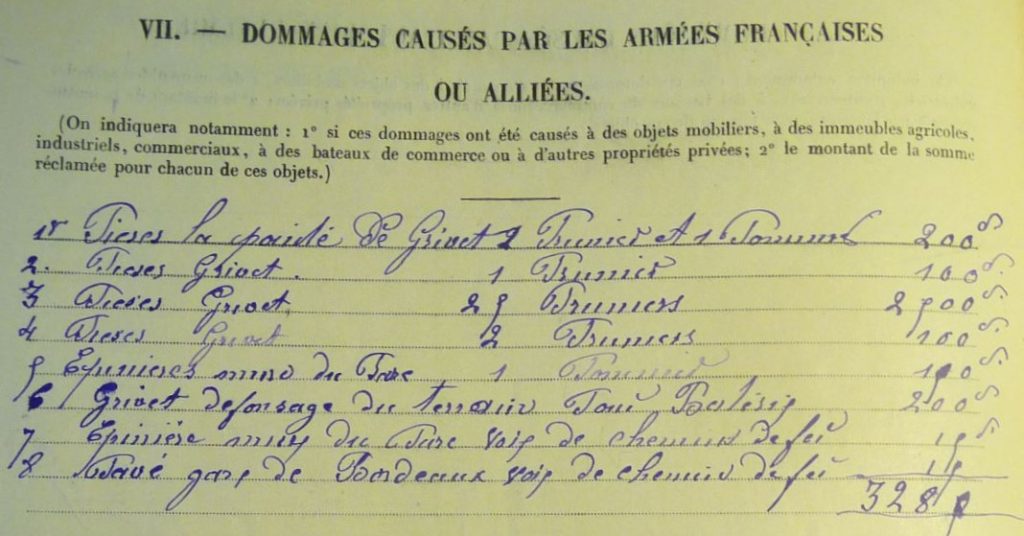 VII. — DOMMAGES CAUSÉS PAR LES ARMÉES FRANÇAISES
OU ALLIÉES.
(On indiquera notamment : 1° si ces dommages ont été causés à des objets mobiliers, à des immeubles agricoles,
industriels, commerciaux, à des bateaux de commerce ou à d'autres propriétés privées; 2° le montant de la somme
réclamée pour chacun de ces objets.)
1r Pieces la de Grivet 2 Prunier et 1 200
2. Pieces Grivet. 1 Prunier 100
3 Pieces Grivet 25 Pruniers 2500
4 Pieces Grivet 2 Pruniers 100
5 Epinieres murs du Parc 1 Pommier
6 Grivet defonsage du terrain 200
7 Epinière murs du Parc voix de chemin de feu
8 Pavé gare de Bordeaux voix de chemin de feu
328